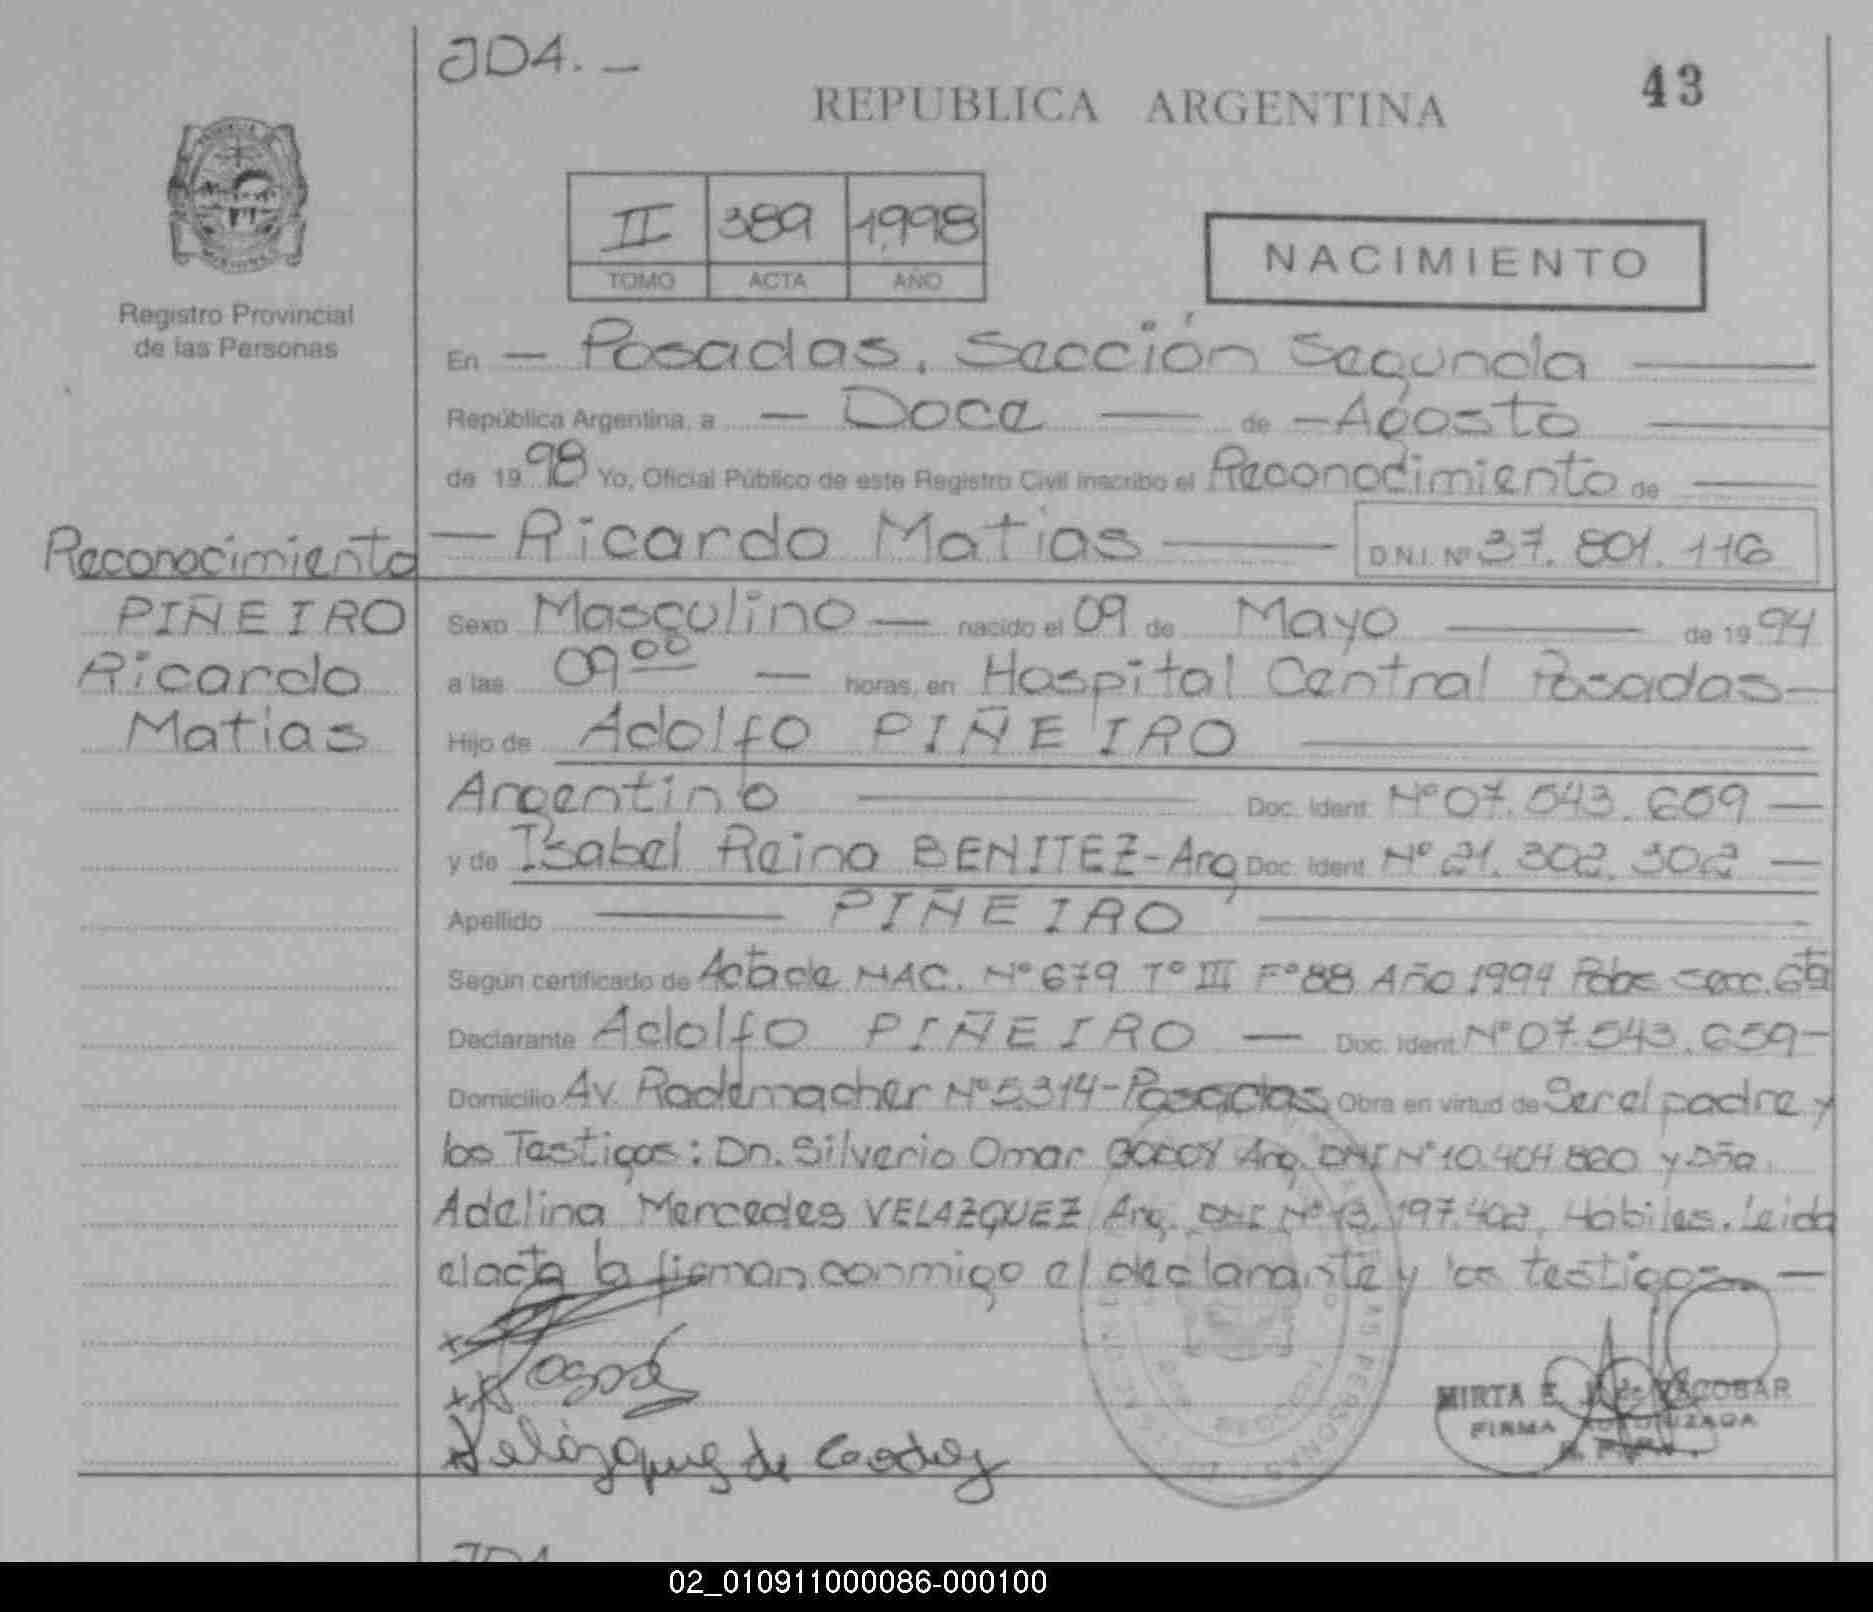 JDA. _
43
REPUBLICA ARGENTINA
II 389 1998
TOMO ACTA AÑO
NACIMIENTO
Registro Provincial
de las Personas
En — Posadas, Sección Segunda —
República Argentina, a — Doce — de — Agosto —
de 1998 Yo, Oficial Público de este Registro Civil inscribo el Reconocimiento de —
Reconocimiento
— Ricardo Matias — D.N.I. Nº 37.801.116
PIÑEIRO
Ricardo
Matias
Sexo Masculino — nacido el 09 de Mayo — de 1994
a las 09⁰⁰ — horas, en Hospital Central Posadas —
Hijo de Adolfo PIÑEIRO —
Argentino — Doc. Ident. Nº 07.543.659 —
y de Isabel Reina BENITEZ - Arg Doc. Ident. Nº 21.302.302 —
Apellido — PIÑEIRO —
Según certificado de Acta de NAC. Nº 679 Tº III Fº 88 Año 1994 Pdas Secc. 6ta
Declarante Adolfo PIÑEIRO — Doc. Ident. Nº 07.543.659 -
Domicilio Av. Rademacher Nº 5314 - Posadas Obra en virtud de Ser el padre y
los Testigos: Dn. Silverio Omar GODOY Arg. DNI Nº 10.404.860 y Dña.
Adelina Mercedes VELAZQUEZ Arg. DNI Nº 13.197.402, Habiles. Leida
el acta la firman conmigo el declarante y los testigos. —
Velázquez de Godoy
MIRTA E. ESCOBAR
FIRMA AUTORIZADA
JDA
02_010911000086-000100